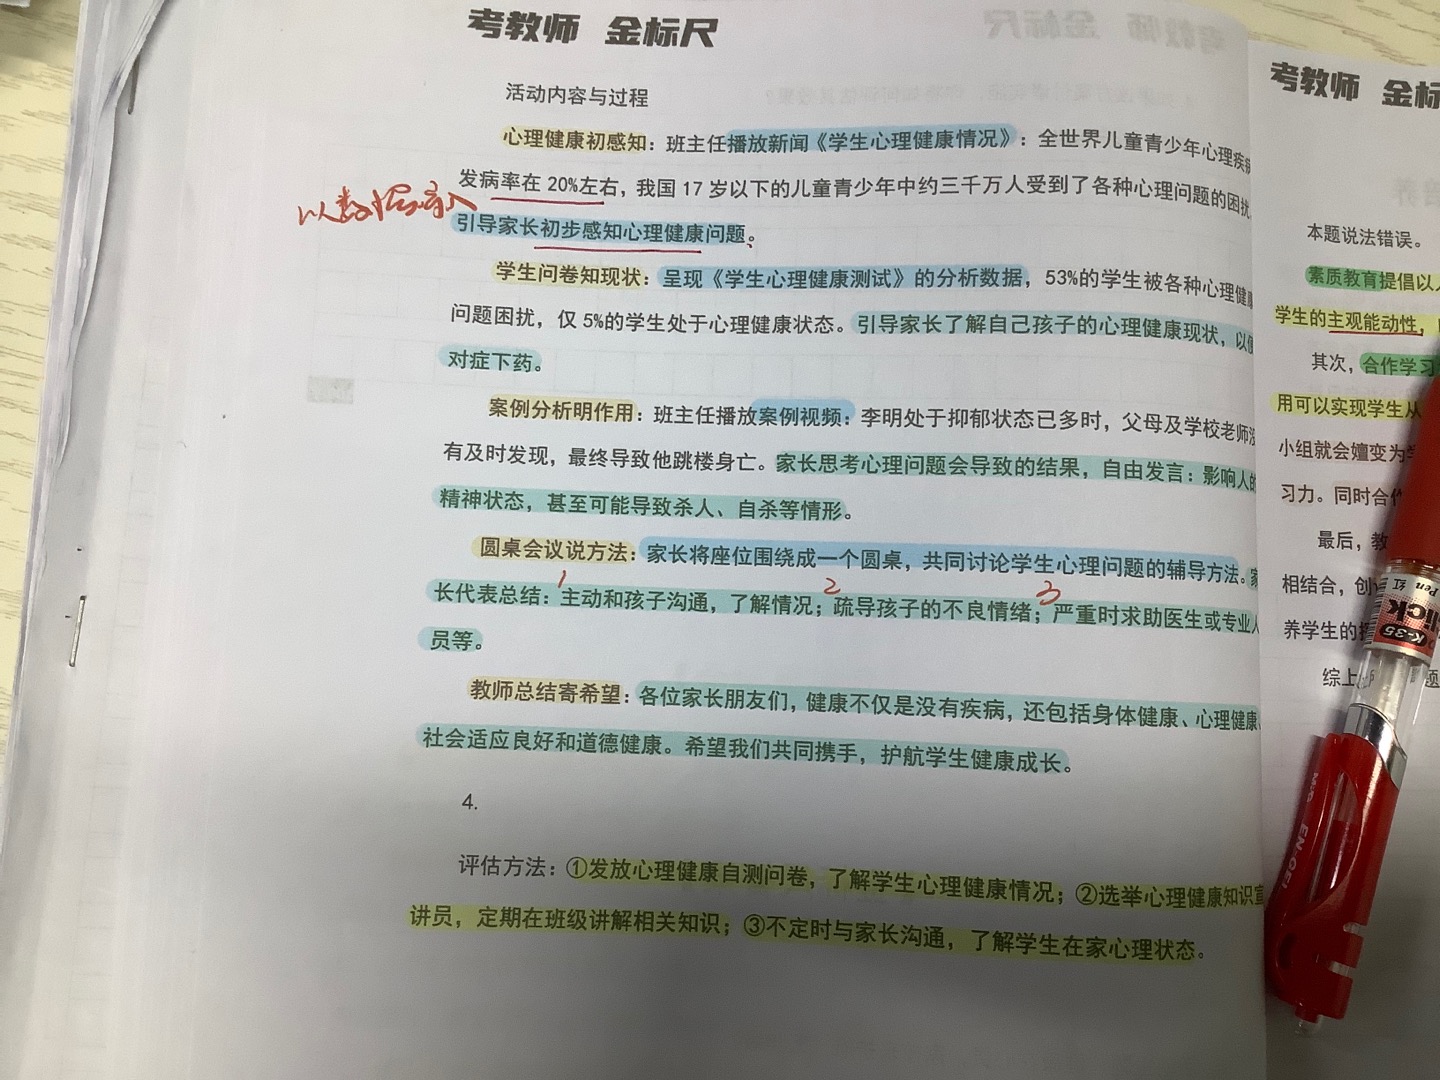 考教师 金标尺
活动内容与过程
心理健康初感知：班主任播放新闻《学生心理健康情况》：全世界儿童青少年心理疾病
发病率在 20%左右，我国 17 岁以下的儿童青少年中约三千万人受到了各种心理问题的困扰，
以数据导入
引导家长初步感知心理健康问题。
学生问卷知现状：呈现《学生心理健康测试》的分析数据，53%的学生被各种心理健康
问题困扰，仅 5%的学生处于心理健康状态。引导家长了解自己孩子的心理健康现状，以便
对症下药。
案例分析明作用：班主任播放案例视频：李明处于抑郁状态已多时，父母及学校老师没
有及时发现，最终导致他跳楼身亡。家长思考心理问题会导致的结果，自由发言：影响人的
精神状态，甚至可能导致杀人、自杀等情形。
圆桌会议说方法：家长将座位围绕成一个圆桌，共同讨论学生心理问题的辅导方法。家
1 2 3
长代表总结：主动和孩子沟通，了解情况；疏导孩子的不良情绪；严重时求助医生或专业人
员等。
教师总结寄希望：各位家长朋友们，健康不仅是没有疾病，还包括身体健康、心理健康、
社会适应良好和道德健康。希望我们共同携手，护航学生健康成长。
4.
评估方法：①发放心理健康自测问卷，了解学生心理健康情况；②选举心理健康知识宣
讲员，定期在班级讲解相关知识；③不定时与家长沟通，了解学生在家心理状态。
考教师 金标
本题说法错误。
素质教育提倡以人
学生的主观能动性，
其次，合作学习
用可以实现学生从
小组就会嬗变为学
习力。同时合作
最后，教
相结合，创
养学生的
综上
题
Pen 红
click
K-35
M&G
EN-GEL